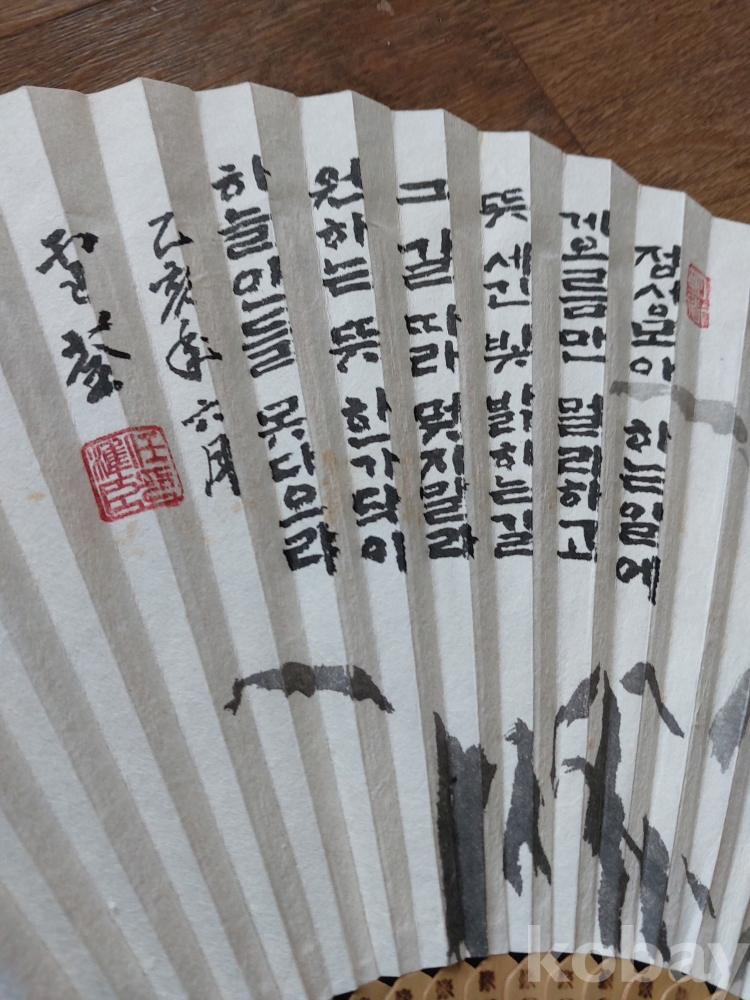 정성모아 하는일에
게으름만 멀리하고
뜻 세긴 빛 밝하는길
그 길 따라 멎지말라
원하는 뜻 한가닥이
하늘인들 못다으랴
乙亥年 六月
kobay